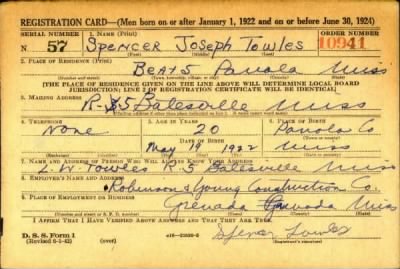 REGISTRATION CARD—(Men born on or after January 1, 1922 and on or before June 30, 1924)
SERIAL NUMBER 1. NAME (Print) ORDER NUMBER
N 57 Spencer Joseph Towles 10941
(First) (Middle) (Last)
2. PLACE OF RESIDENCE (Print)
Beat 5 Panola Miss
(Number and street) (Town, township, village, or city) (County) (State)
[THE PLACE OF RESIDENCE GIVEN ON THIS LINE ABOVE WILL DETERMINE LOCAL BOARD
JURISDICTION; LINE 2 OF REGISTRATION CERTIFICATE WILL BE IDENTICAL]
3. MAILING ADDRESS
R 5 Batesville Miss
4. TELEPHONE 5. AGE IN YEARS 6. PLACE OF BIRTH
None 20 Panola Co
DATE OF BIRTH
May 19 1922 Miss
7. NAME AND ADDRESS OF PERSON WHO WILL ALWAYS KNOW YOUR ADDRESS
L. W. Towles R 5 Batesville Miss
8. EMPLOYER'S NAME AND ADDRESS
Robinson & Young Construction Co.
9. PLACE OF EMPLOYMENT OR BUSINESS
Grenada Miss
(Number and street or R. F. D. number) (Town) (County) (State)
I AFFIRM THAT I HAVE VERIFIED ABOVE ANSWERS AND THAT THEY ARE TRUE.
D. S. S. Form 1
(Revised 6-1-42) (over) Spencer Towles
(Registrant's signature)